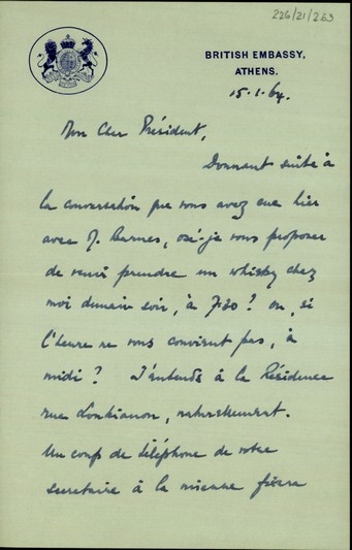 226/21/263
BRITISH EMBASSY,
ATHENS.
15.1.64.
Mon Cher Président,
Donnant suite à
la conversation que vous avez eue hier
avec J. Barnes, osé-je vous proposer
de venir prendre un whisky chez
moi demain soir, à 7.30? ou, si
l'heure ne vous convient pas, à
midi? J'entends à la Résidence
rue Loukianou, naturellement.
Un coup de téléphone de votre
secretaire à la mienne fixera